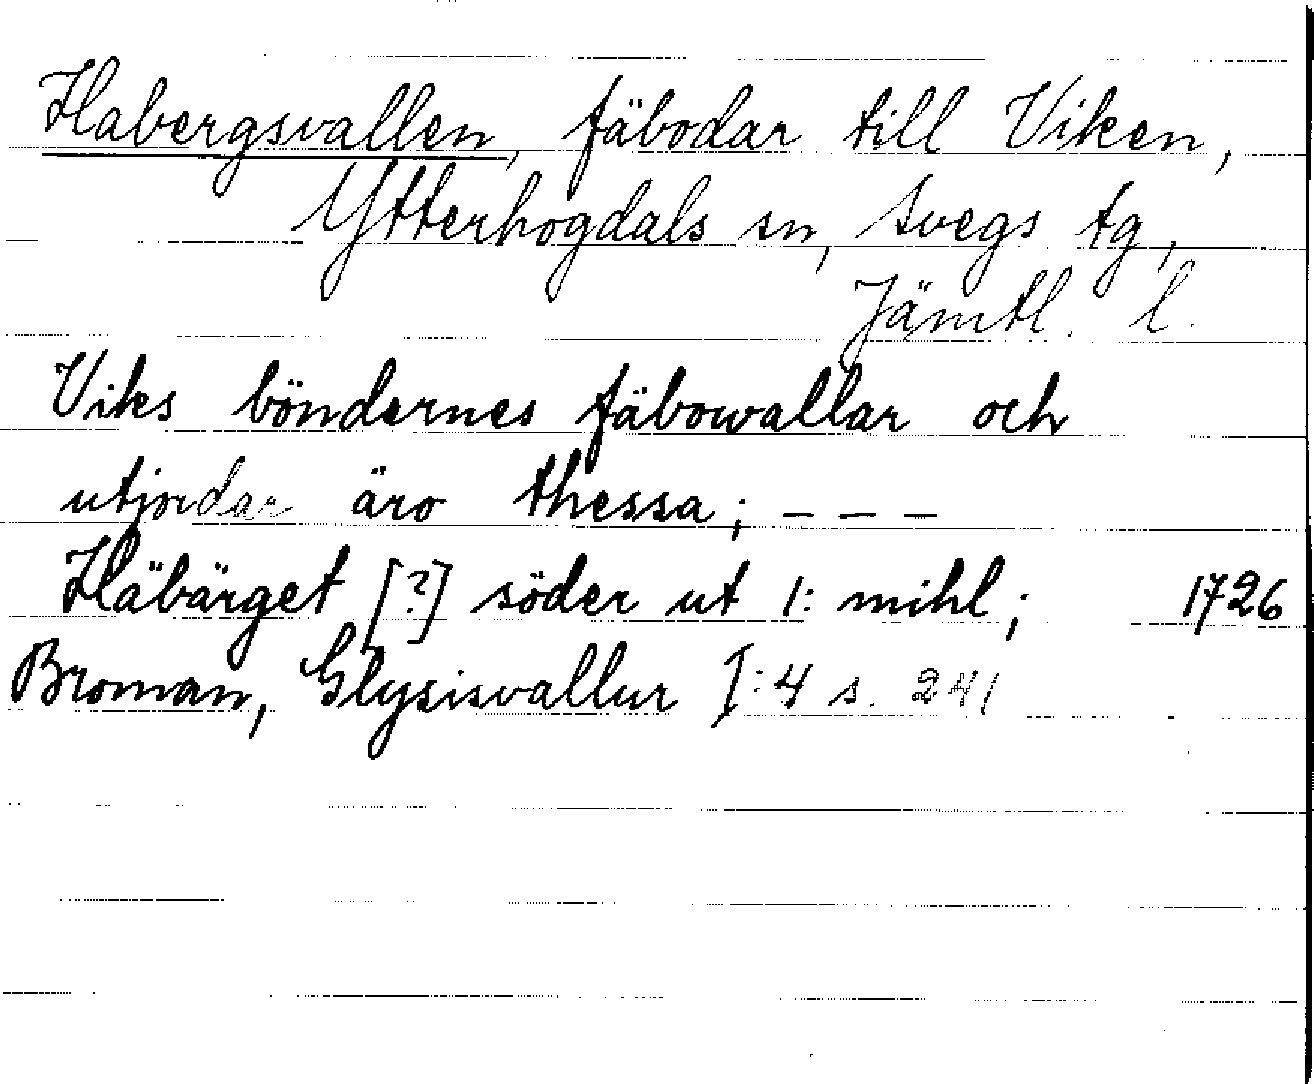 Habergsvallen, fäbodar till Viken,
Ytterhogdals sn, Svegs tg,
Jämtl. l.
Viks böndernes fäbowallar och
utjordar äro thessa; – – –
Häbärget [?] söder ut 1: mihl; 1726
Broman, Glysisvallur I:4 s. 241